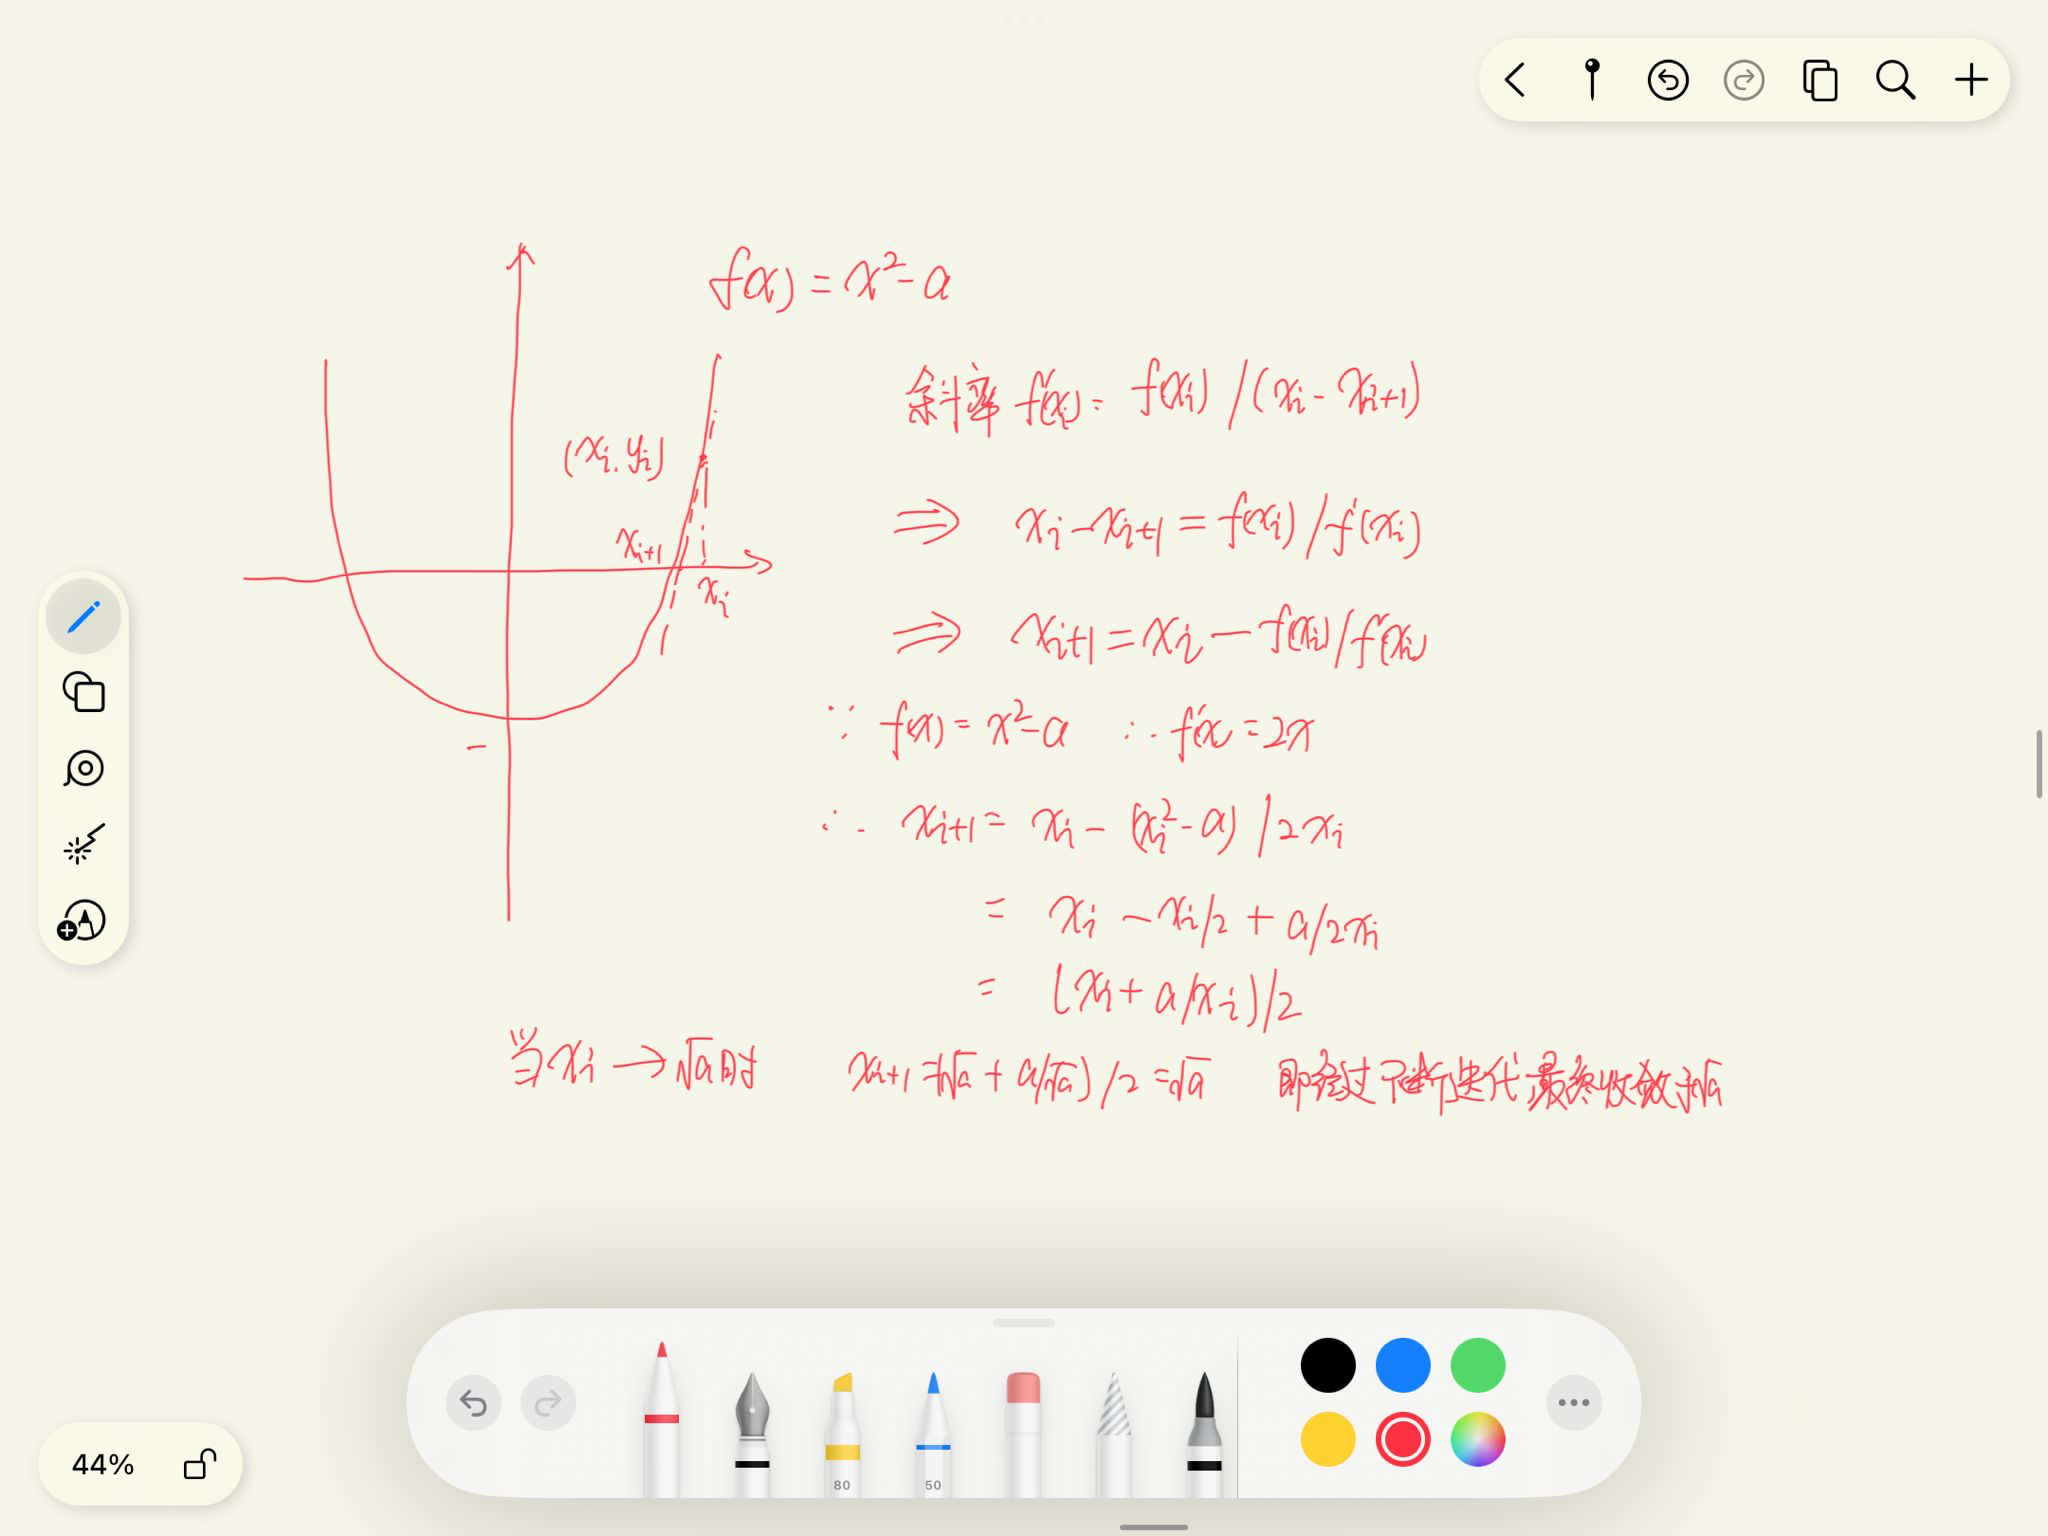 f(x) = x²-a
斜率 f'(xi) = f(xi) / (xi - xi+1)
(xi, yi)
⇒ xi - xi+1 = f(xi) / f'(xi)
xi+1
xi
⇒ xi+1 = xi - f(xi) / f'(xi)
∵ f(x) = x²-a ∴ f'(x) = 2x
∴ xi+1 = xi - (xi²-a) / 2xi
= xi - xi/2 + a/2xi
= (xi + a/xi)/2
当 xi → √a 时 xi+1 = (√a + a/√a) / 2 = √a 即经过不断迭代最终收敛于√a
80 50
44%